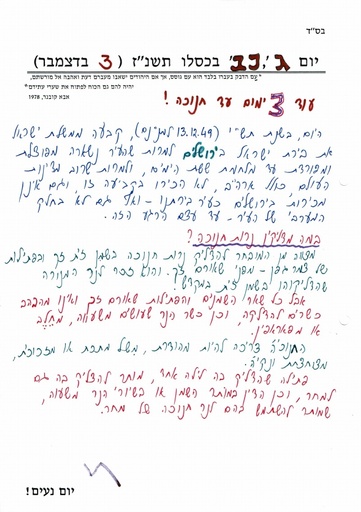 בס"ד
יום ג', כב' בכסלו תשנ"ז (3 בדצמבר)
"עם הדבק בעברו בלבד הוא עם גוסס, אך אם היהודים ישאבו מעברם דעת ואהבה אל מורשתם,
יהיה להם גם הכוח לפתוח את שערי עתידם"
אבא קובנר, 1978
עוד 3 ימים עד חנוכה!
היום, בשנת תש"י (13.12.49 למנינם), קבעה ממשלת ישראל
את בירת ישראל בירושלים למרות שהעיר נשארה מפוצלת
ומפורדת עד מלחמת ששת הימים, ולמרות שרוב מדינות
העולם כולל ארה"ב, לא הכירו בקביעה זו, וגם אינן
מכירות בירושלים כעיר בירתנו - ואף גם לא בחלק
המערבי של העיר - עד עצם היום הזה.
במה מדליקין נרות חנוכה?
מצוה מן המובחר להדליק נרות חנוכה בשמן זית זך ובפתילות
של צמר גפן - מפני שאורם זך. והוא זכר לנר המנורה
שהדליקוהו בשמן זית במקדש.
אבל כל שאר השמנים והפתילות שאורם זך ואינו מהבהב
כשרים להדלקה וכן כשר הנר שעושים משעוה, מחלב
או מפאראפין.
החנוכיה צריכה להיות מהודרת, משל מתכת או זכוכית,
מצוחצחת ונקיה.
פתילה שהדליק בה לילה אחד, מותר להדליק בה גם
למחר, וכן הדין במותר השמן או בשיורי הנר משעוה,
שמותר להשתמש בהם לנר חנוכה של מחר.
יום נעים!